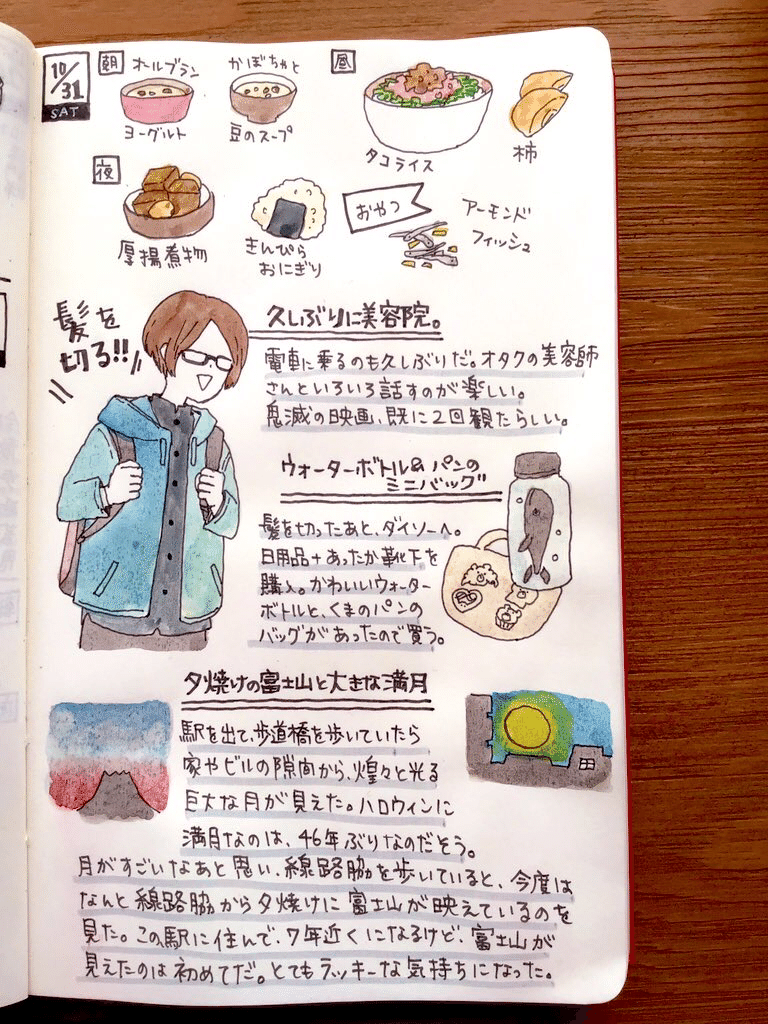 10/31
SAT
朝
オールブラン
ヨーグルト
かぼちゃと
豆のスープ
昼
タコライス
柿
夜
厚揚煮物
きんぴら
おにぎり
おやつ
アーモンド
フィッシュ
髪を
切る!!
久しぶりに美容院。
電車に乗るのも久しぶりだ。オタクの美容師
さんといろいろ話すのが楽しい。
鬼滅の映画、既に2回観たらしい。
ウォーターボトル&パンの
ミニバッグ
髪を切ったあと、ダイソーへ。
日用品+あったか靴下を
購入。かわいいウォーター
ボトルと、くまのパンの
バッグがあったので買う。
夕焼けの富士山と大きな満月
駅を出て、歩道橋を歩いていたら
家やビルの隙間から、煌々と光る
巨大な月が見えた。ハロウィンに
満月なのは、46年ぶりなのだそう。
月がすごいなあと思い、線路脇を歩いていると、今度は
なんと線路脇から夕焼けに富士山が映えているのを
見た。この駅に住んで、7年近くになるけど、富士山が
見えたのは初めてだ。とてもラッキーな気持ちになった。